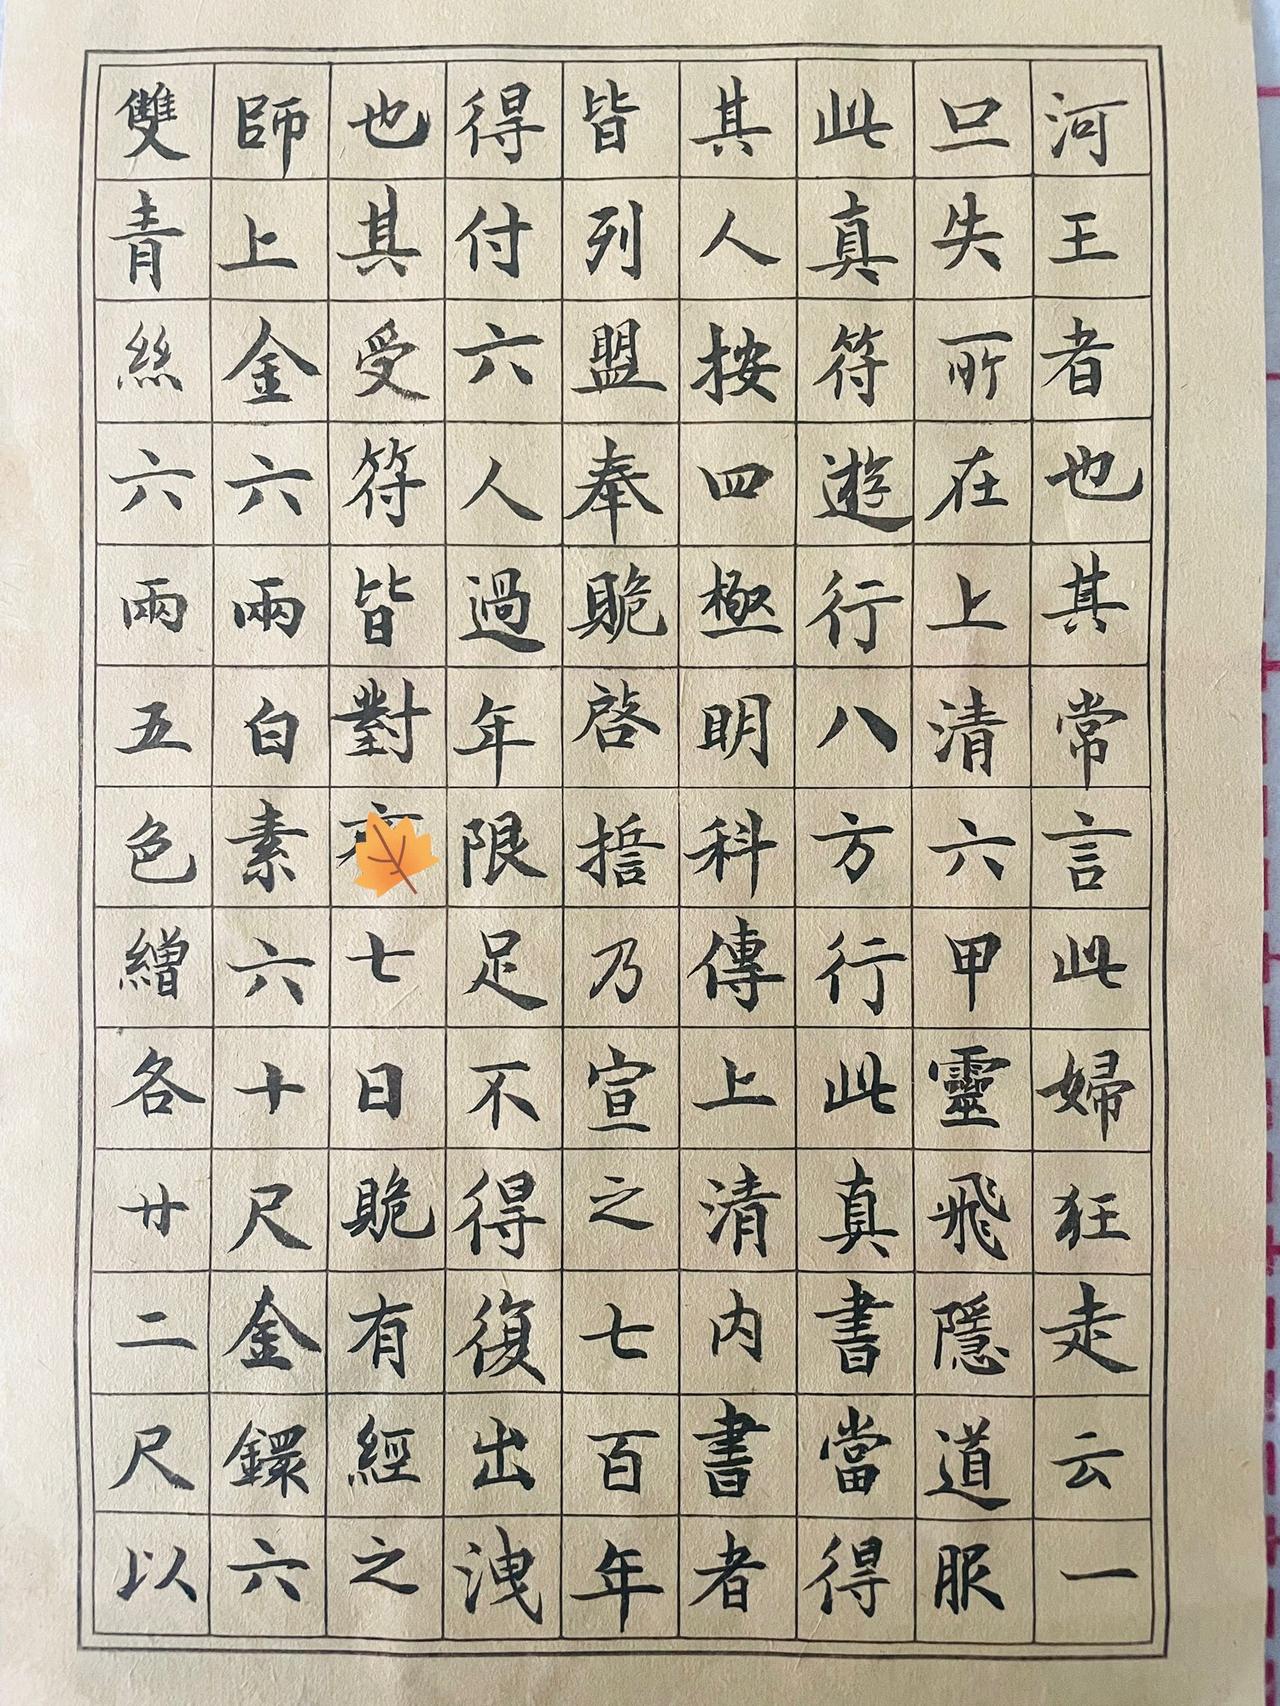 河王者也其常言此婦狂走云一
旦失所在上清六甲靈飛隱道服
此真符遊行八方行此真書當得
其人按四極明科傳上清內書者
皆列盟奉貹啓誓乃宣之七百年
得付六人過年限足不得復出洩
也其受符皆對七日貹有經之
師上金六兩白素六十尺金鐶六
雙青絲六兩五色繒各廿二尺以